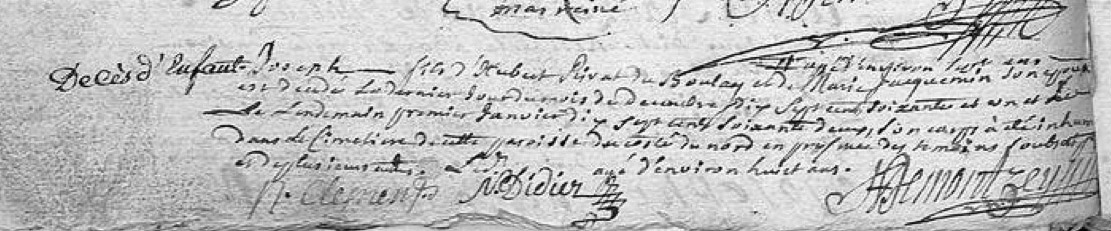 mas reiné
agé d'environ huit ans
Décès d'Enfant Joseph fils d'Hubert Privat du Boulay et de Marie Jacquemin son epouse
est decede le dernier jour du mois de decembre dix sept cent soixante et un et
le lendemain premier Janvier dix sept cent soixante deux, son corps à été inhumé
dans le Cimetiere de cette paroisse du costé du nord en presence des temoins soubs
et de plusieurs autres. agé d'environ huit ans.
N. Clement N. Didier